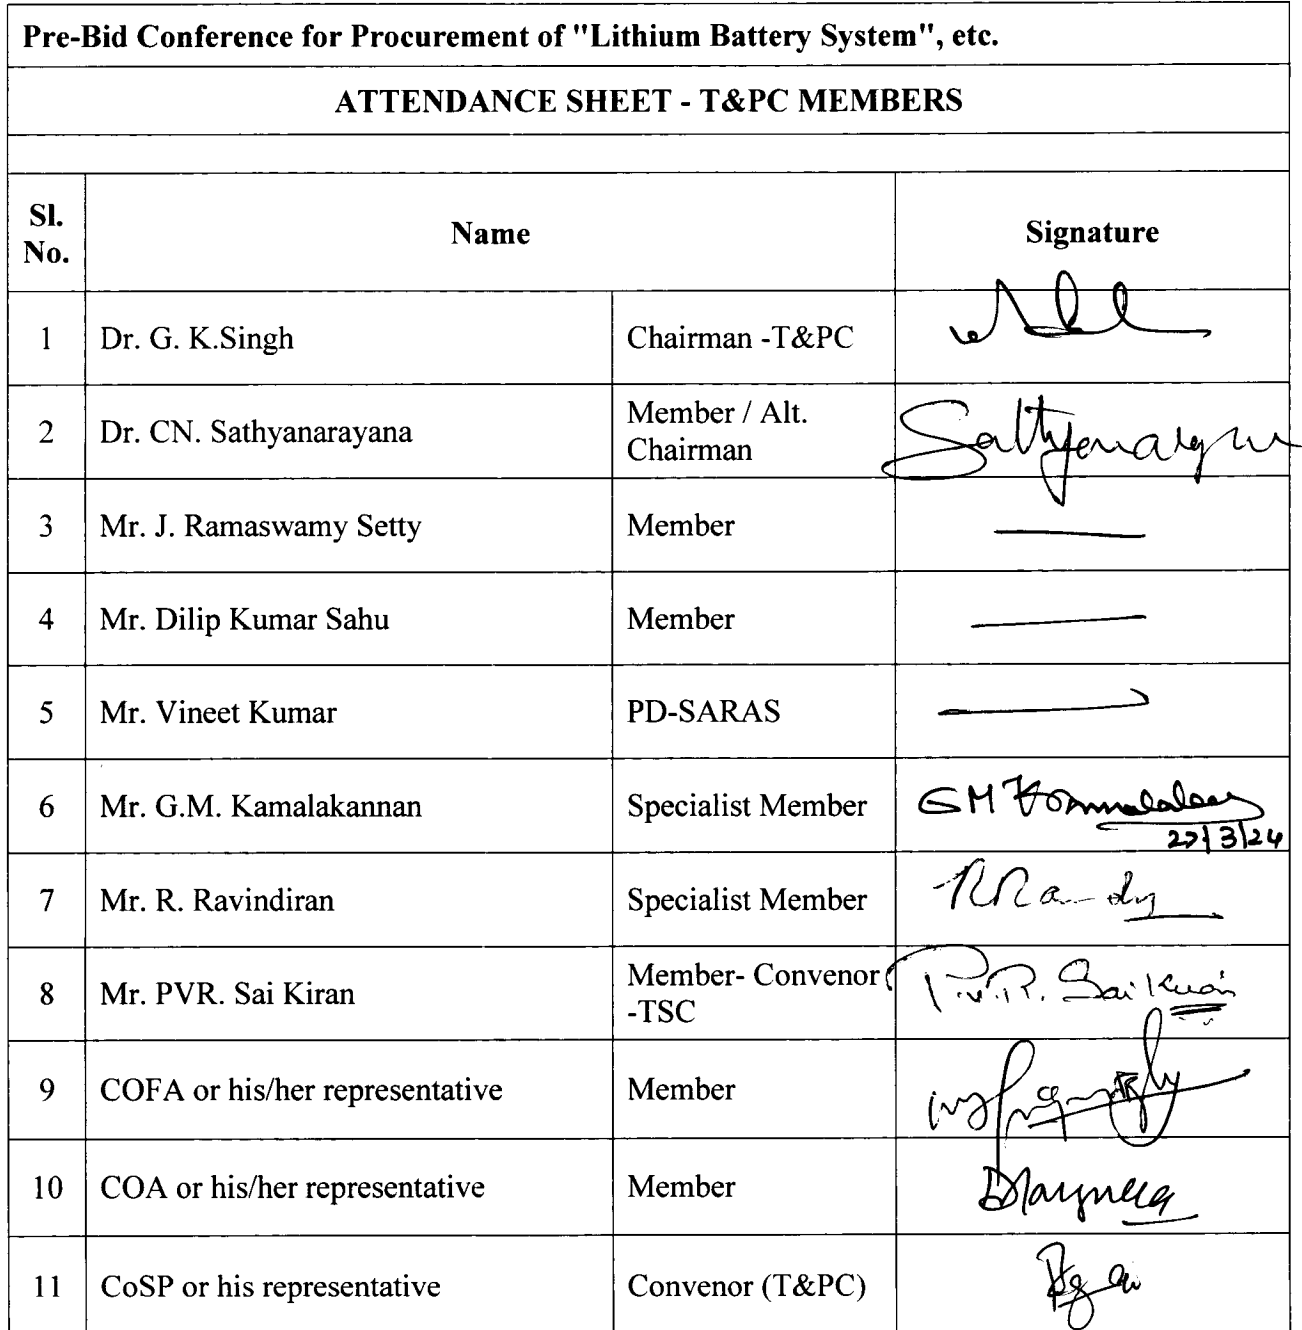 Pre-Bid Conference for Procurement of "Lithium Battery System", etc.
ATTENDANCE SHEET - T&PC MEMBERS
Sl. No. Name Signature
1 Dr. G. K.Singh Chairman -T&PC
2 Dr. CN. Sathyanarayana Member / Alt. Chairman
3 Mr. J. Ramaswamy Setty Member
4 Mr. Dilip Kumar Sahu Member
5 Mr. Vineet Kumar PD-SARAS
6 Mr. G.M. Kamalakannan Specialist Member GM
7 Mr. R. Ravindiran Specialist Member
8 Mr. PVR. Sai Kiran Member- Convenor -TSC P.V.R. Sai Kiran
9 COFA or his/her representative Member
10 COA or his/her representative Member
11 CoSP or his representative Convenor (T&PC)